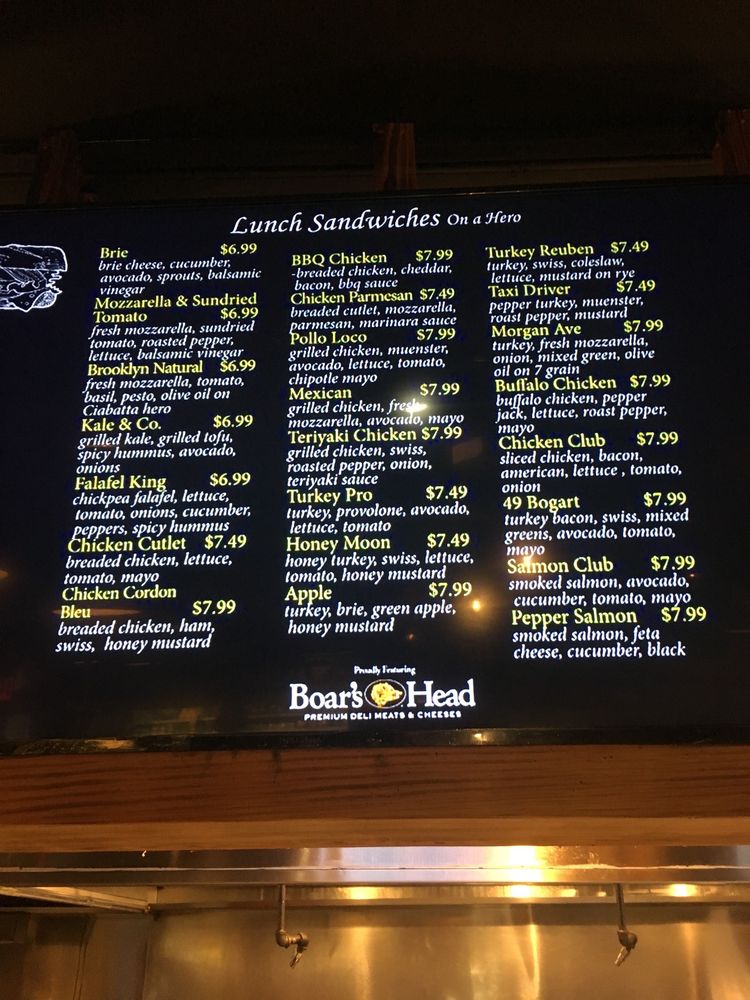 Lunch Sandwiches On a Hero
Brie $6.99
brie cheese, cucumber,
avocado, sprouts, balsamic
vinegar
Mozzarella & Sundried
Tomato $6.99
fresh mozzarella, sundried
tomato, roasted pepper,
lettuce, balsamic vinegar
Brooklyn Natural $6.99
fresh mozzarella, tomato,
basil, pesto, olive oil on
Ciabatta hero
Kale & Co. $6.99
grilled kale, grilled tofu,
spicy hummus, avocado,
onions
Falafel King $6.99
chickpea falafel, lettuce,
tomato, onions, cucumber,
peppers, spicy hummus
Chicken Cutlet $7.49
breaded chicken, lettuce,
tomato, mayo
Chicken Cordon
Bleu $7.99
breaded chicken, ham,
swiss, honey mustard
BBQ Chicken $7.99
-breaded chicken, cheddar,
bacon, bbq sauce
Chicken Parmesan $7.49
breaded cutlet, mozzarella,
parmesan, marinara sauce
Pollo Loco $7.99
grilled chicken, muenster,
avocado, lettuce, tomato,
chipotle mayo
Mexican $7.99
grilled chicken, fresh
mozzarella, avocado, mayo
Teriyaki Chicken $7.99
grilled chicken, swiss,
roasted pepper, onion,
teriyaki sauce
Turkey Pro $7.49
turkey, provolone, avocado,
lettuce, tomato
Honey Moon $7.49
honey turkey, swiss, lettuce,
tomato, honey mustard
Apple $7.99
turkey, brie, green apple,
honey mustard
Turkey Reuben $7.49
turkey, swiss, coleslaw,
lettuce, mustard on rye
Taxi Driver $7.49
pepper turkey, muenster,
roast pepper, mustard
Morgan Ave $7.99
turkey, fresh mozzarella,
onion, mixed green, olive
oil on 7 grain
Buffalo Chicken $7.99
buffalo chicken, pepper
jack, lettuce, roast pepper,
mayo
Chicken Club $7.99
sliced chicken, bacon,
american, lettuce , tomato,
onion
49 Bogart $7.99
turkey bacon, swiss, mixed
greens, avocado, tomato,
mayo
Salmon Club $7.99
smoked salmon, avocado,
cucumber, tomato, mayo
Pepper Salmon $7.99
smoked salmon, feta
cheese, cucumber, black
Proudly Featuring
Boar's Head
PREMIUM DELI MEATS & CHEESES